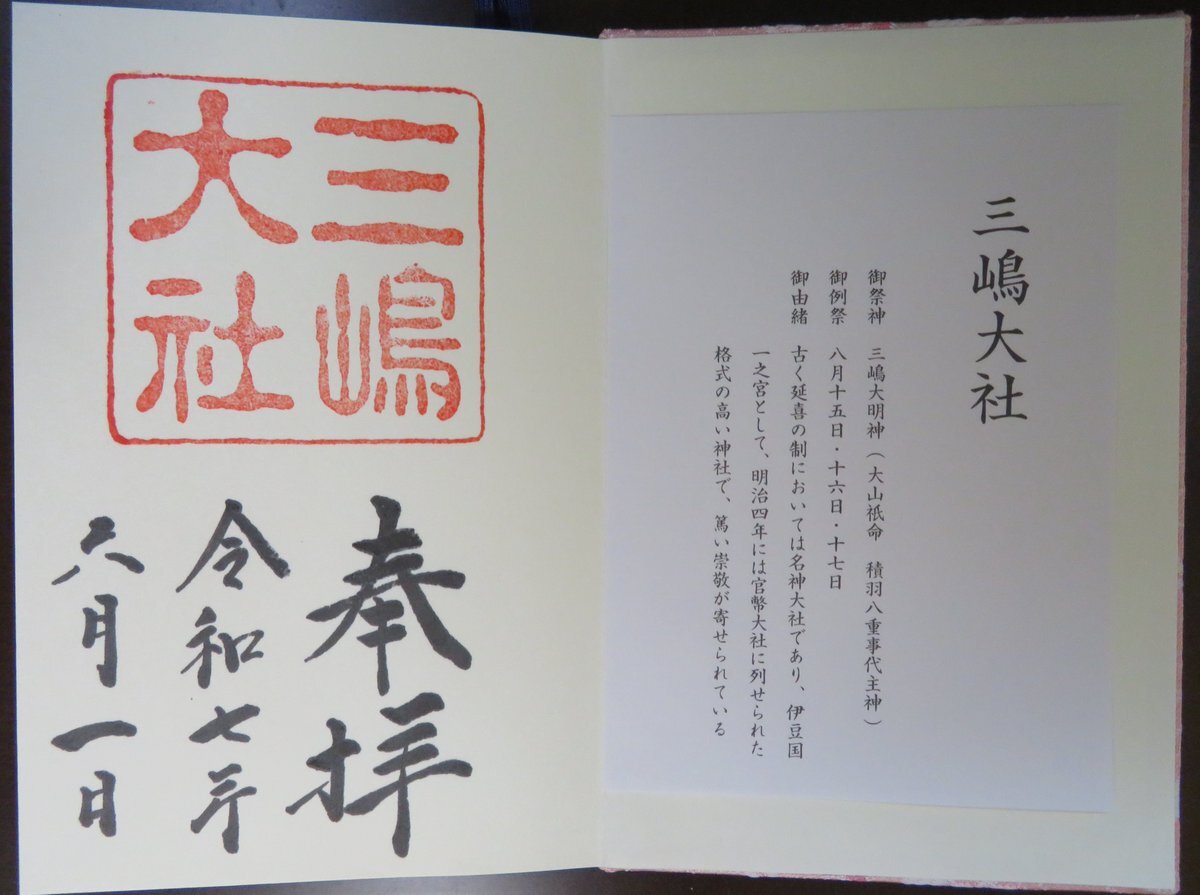 三嶋大社
御祭神 三嶋大明神（大山祇命 積羽八重事代主神）
御例祭 八月十五日・十六日・十七日
御由緒 古く延喜の制においては名神大社であり、伊豆国
一之宮として、明治四年には官幣大社に列せられた
格式の高い神社で、篤い崇敬が寄せられている
三嶋
大社
奉拝
令和七年
六月一日